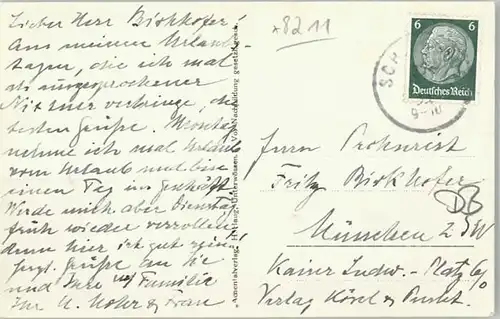 *8211
Lieber Herr Birkhofer!
Aus meinen Urlaubs-
tagen, die ich mal
als ausgesprochener
Nix tuer verbringe, die
besten Grüße. Montag
nehme ich mal Urlaub
vom Urlaub und bin
einen Tag im Geschäft
Werde mich aber Dienstag
früh wieder verrollen
denn hier ist gut sein!
Herzl. Grüße an Sie
und Ihre Familie
Ihr u. Frau
"Amentaverlag", Unterwössen. Vor Nachbildung gesetzl. gesch.
6 6
Deutsches Reich
SCH
9-10
Herrn Prokurist
Fritz Birkhofer
München 2 SW
Kaiser Ludw.-Platz 6/0
Verlag Kösel & Pustet.